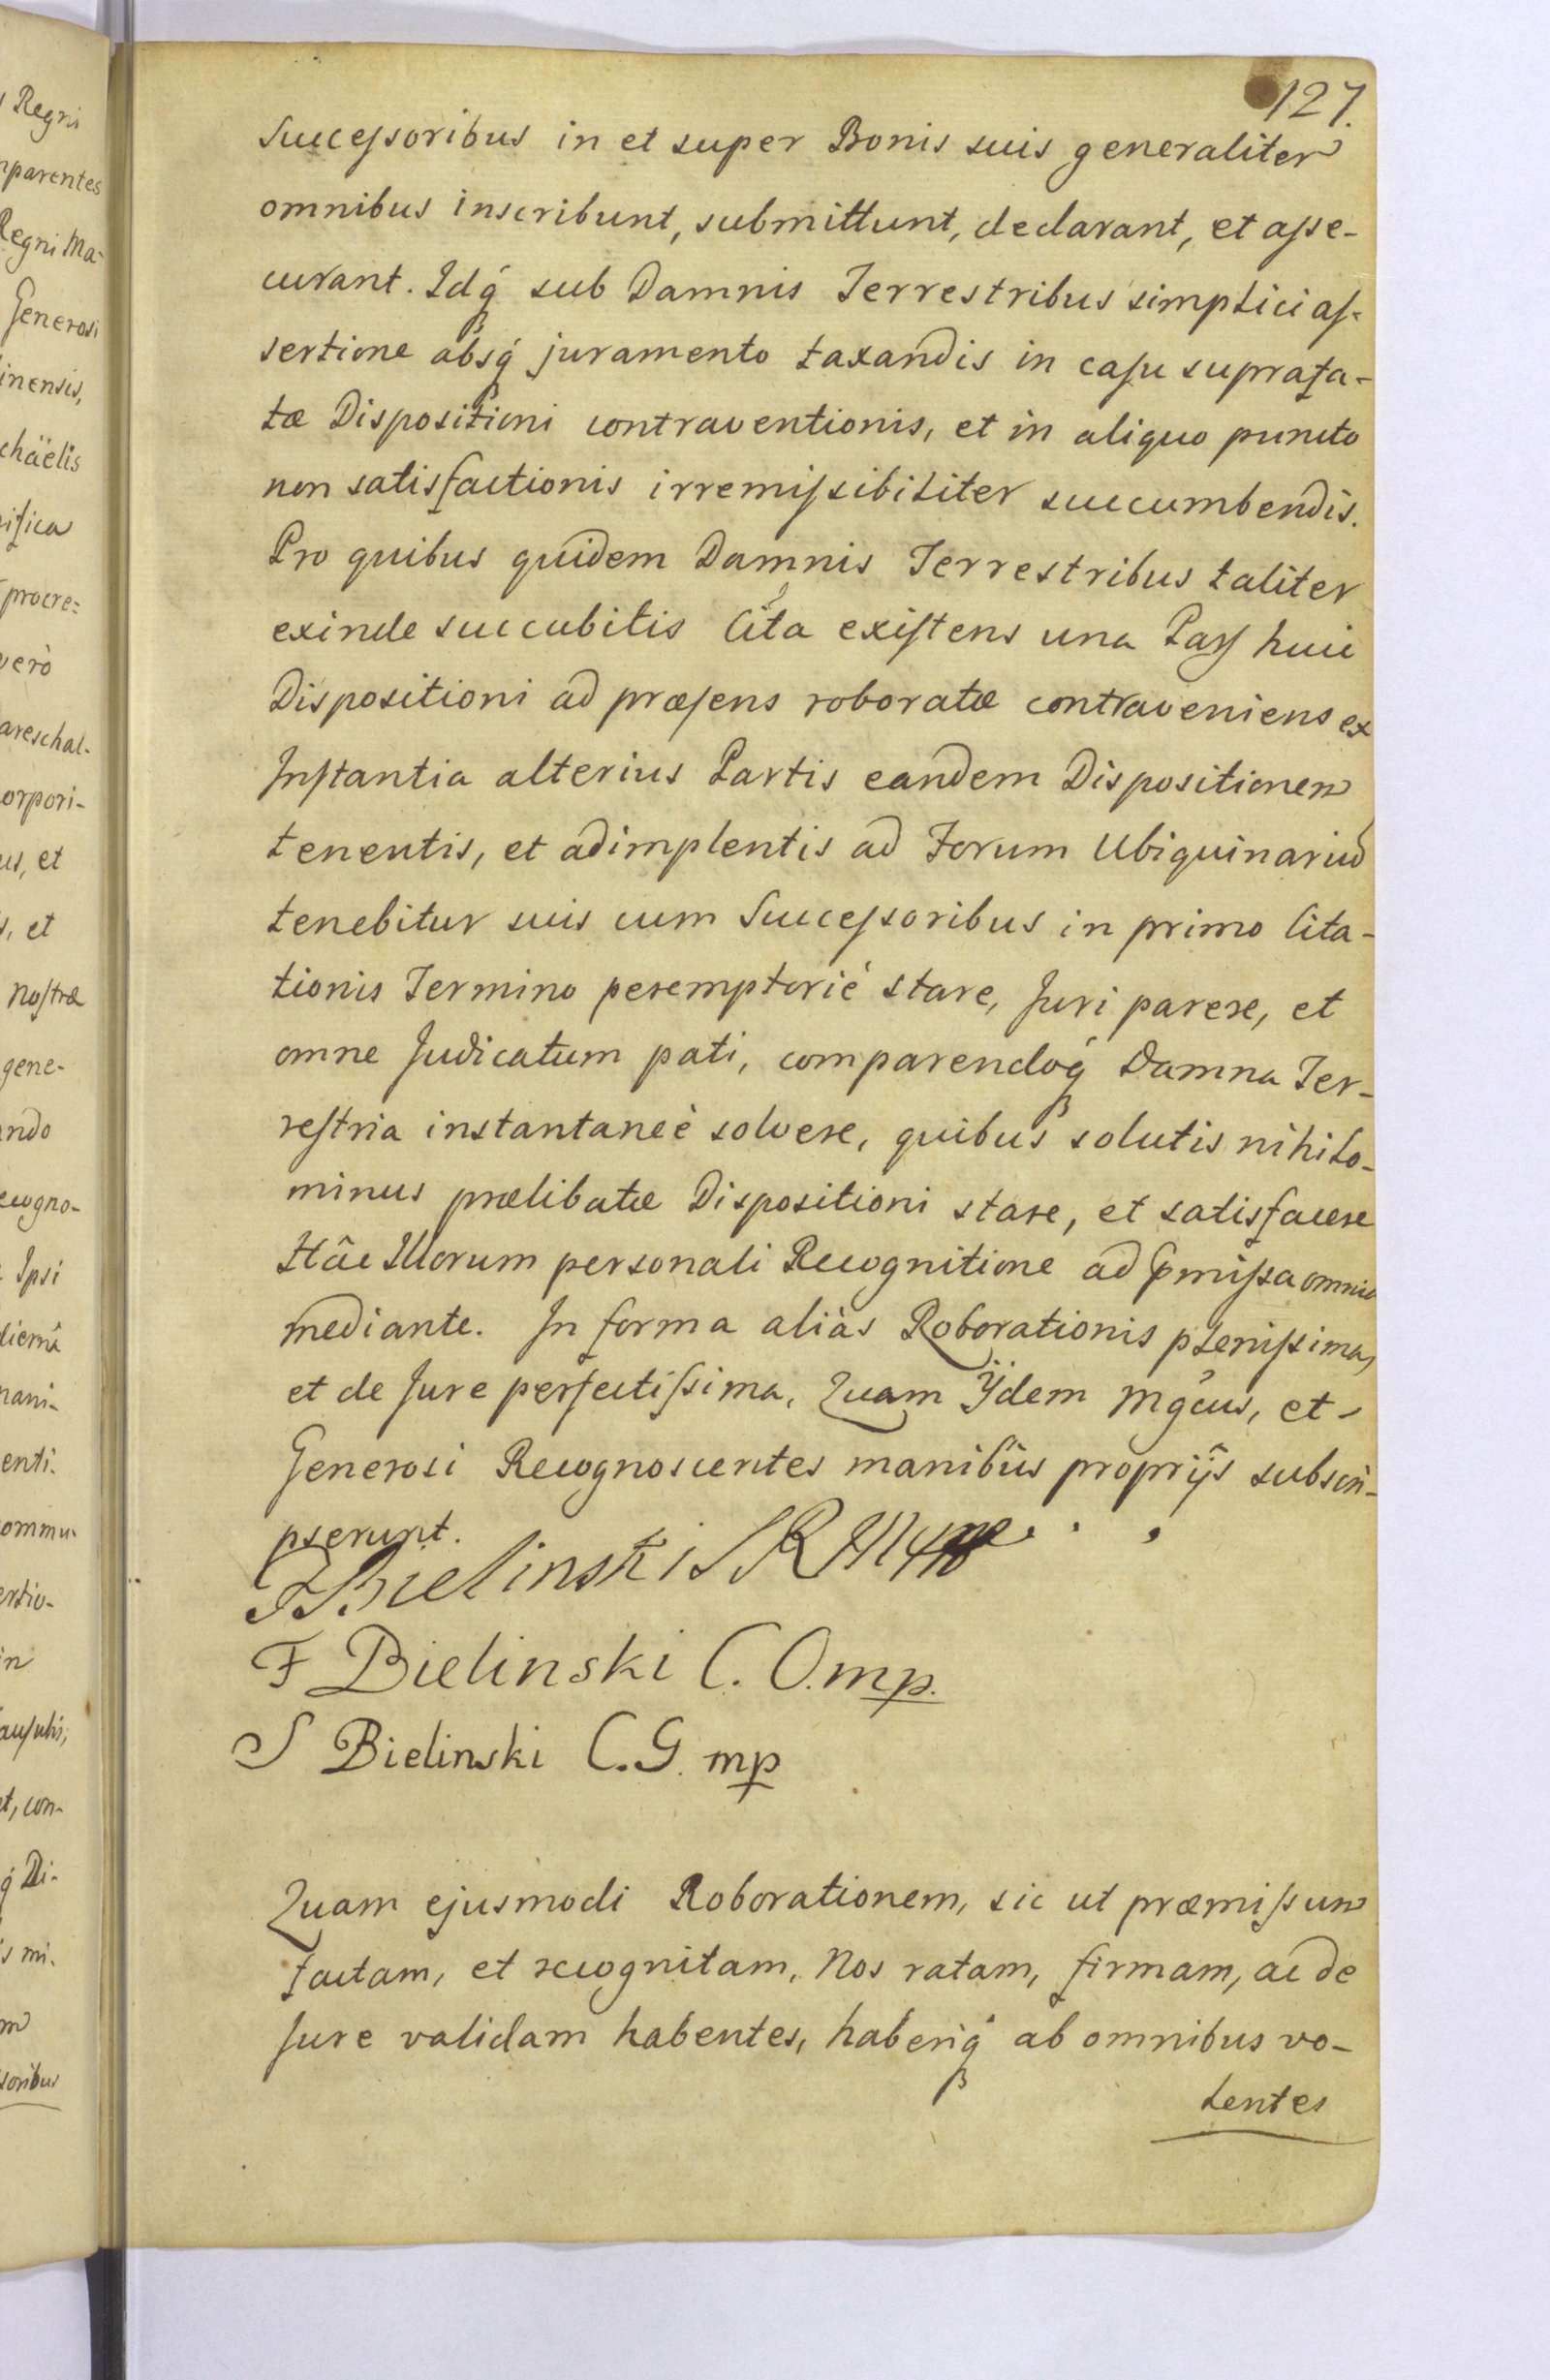 127.
Successoribus in et super Bonis suis generaliter
omnibus inscribunt, submittunt, declarant, et asse-
curant. Idq́ sub Damnis Terrestribus simplici as-
sertione absq́ juramento taxandis in casu suprafa-
tæ Dispositioni contraventionis, et in aliquo puncto
non satisfactionis irremissibiliter succumbendis.
Pro quibus quidem Damnis Terrestribus taliter
exinde succubitis Cita existens una Pars huic
Dispositioni ad præsens roboratæ contraveniens ex
Instantia alterius Partis eandem Dispositionem
tenentis, et adimplentis ad Forum Ubiquinarium
tenebitur suis cum Successoribus in primo Cita-
tionis Termino peremptorié stare, Juri parere, et
omne Judicatum pati, comparendoq́ Damna Ter-
restria instantaneè solvere, quibus solutis nihilo-
minus prælibatæ Dispositioni stare, et satisfacere
Hâc Illorum personali Recognitione ad pmissa omnia
mediante. In forma aliàs Roborationis plenissima,
et de Jure perfectissima, Quam Ÿdem Mgcus, et
Generosi Recognoscentes manibus proprijs subscri-
pserunt.
F Bielinski C. O. mp.
S Bielinski C. G. mp
Quam ejusmodi Roborationem, sic ut præmissum
factam, et recognitam, Nos ratam, firmam, ac de
Jure validam habentes, haberiq́ ab omnibus vo-
lentes
Regni
nparentes
Regni Ma-
Generosi
inensis,
chäelis
nifica
procre=
verò
areschal-
orpori-
us, et
s, et
Nostræ
gene-
ando
ecogno-
Ipsi
diernâ
mani-
enti.
ommu-
ertio-
in
ausulis,
et, con-
q́ Di-
is mi.
m
soribus